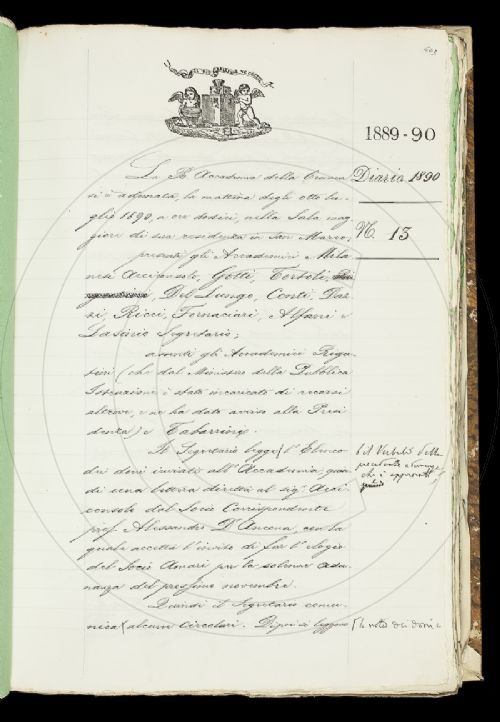 1889-90
Diario 1890
N. 13
La R. Accademia della Crusca
si è adunata, la mattina degli otto lu-
glio 1890, a ore dodici, nella Sala mag-
giore di sua residenza in San Marco,
presenti gli Accademici Mila-
nesi Arciconsolo, Gotti, Tortoli,
Del Lungo, Conti, Daz-
zi, Ricci, Fornaciari, Alfani e
Dasinio Segretario;
assenti gli Accademici Rigu-
tini (che dal Ministero della Pubblica
Istruzione è stato incaricato di recarsi
altrove, e ne ha dato avviso alla Presi-
denza) e Tabarrini.
Il Segretario legge l'Elenco
dei doni inviati all'Accademia, quin-
di una lettera diretta al sig. Arci-
consolo dal Socio Corrispondente
prof. Alessandro D'Ancona, con la
quale accetta l'invito di far l'elogio
del Socio Amari per la solenne adu-
nanza del prossimo novembre.
Quindi il Segretario comu-
nica alcune Circolari. Dipoi si leggono
il Verbale della
precedente adunanza
che è approvato
la nota dei doni e